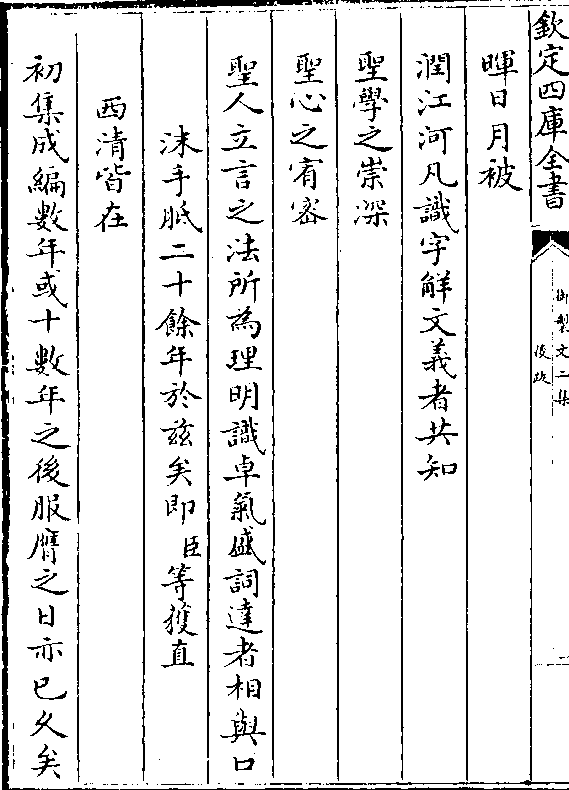 欽定四庫全書
御製文二集
後跋
二
暉日月被
潤江河凡識字解文義者共知
聖學之崇深
聖心之宥密
聖人立言之法所為理明識卓氣盛詞達者相與口
沫手胝二十餘年於兹矣即臣等獲直
西清皆在
初集成編數年或十數年之後服膺之日亦已久矣